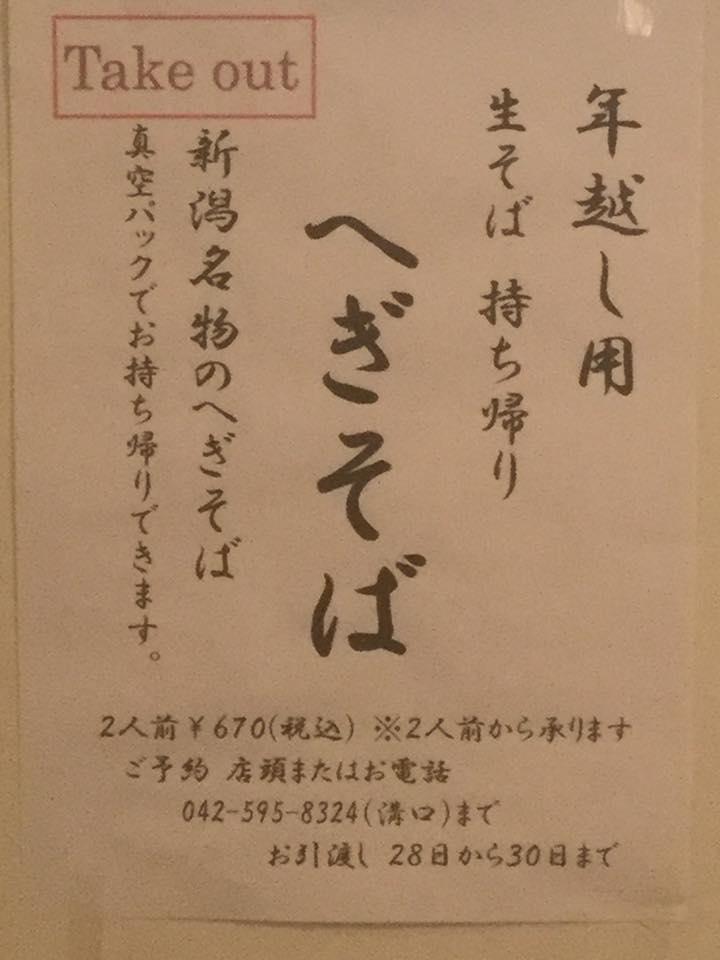 Take out
年越し用
生そば 持ち帰り
へぎそば
新潟名物のへぎそば
真空パックでお持ち帰りできます。
2人前￥670(税込) ※2人前から承ります
ご予約 店頭またはお電話
042-595-8324(溝口)まで
お引渡し 28日から30日まで